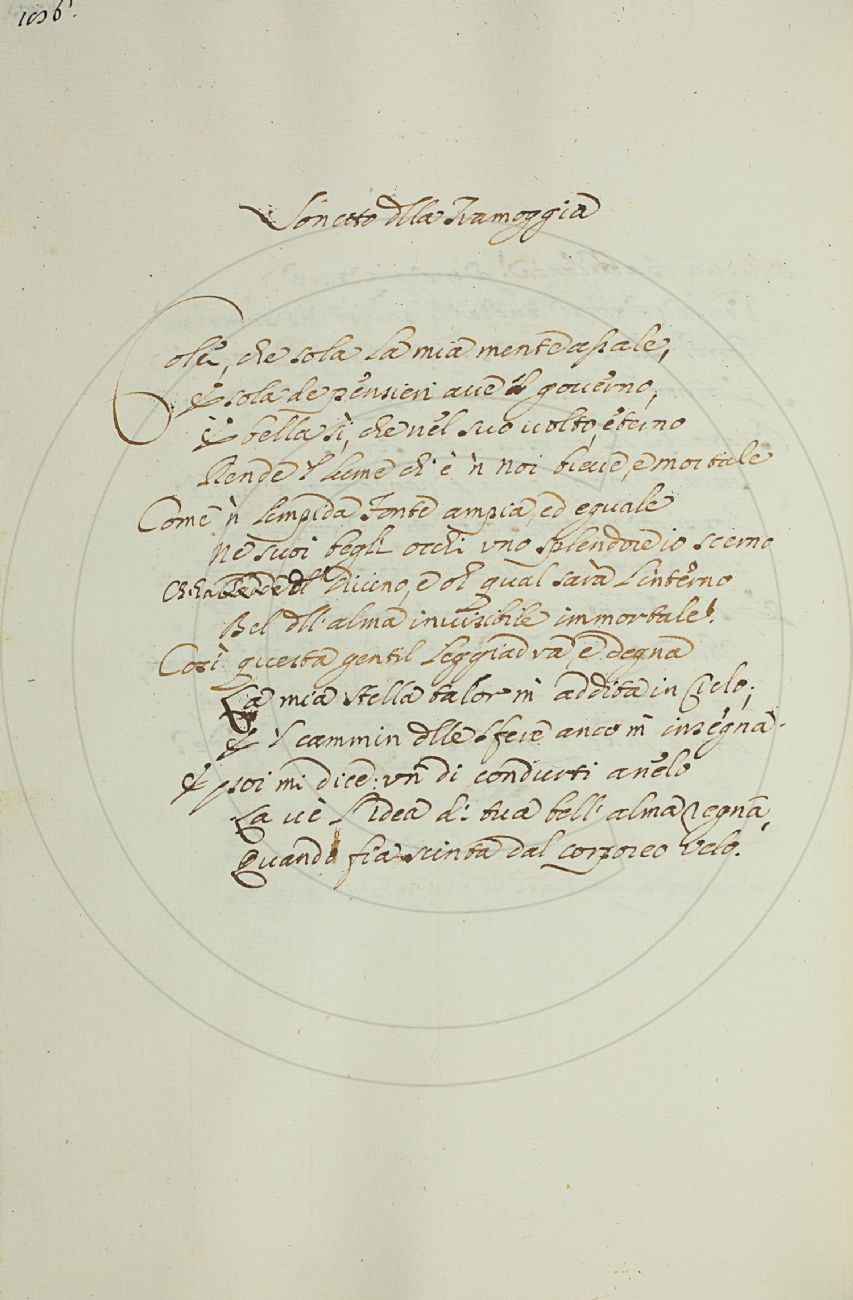 106.
Sonetto dlla Tramoggia
Colei, che sola la mia mente assale,
E sola de pensieri ave il governo,
E bella sì, che nel suo volto eterno
Rende 'l lume ch' è 'n noi breve, e mortale
Come 'n lempida Fonte ampia, ed eguale
Ne suoi begli occhi uno splendore io scerno
Ch' ha del Divino, e oh qual sarà l'interno
Bel dll' alma invisibile immortale!
Così questa gentil leggiadra e degna
La mia stella talor m' addita in Cielo;
E 'l cammin dlle sfere anco m' insegna.
E poi mi dice: un di condurti anelo
La vè l' idea di tua bell' alma regna,
Quando fia scinta dal corporeo velo.